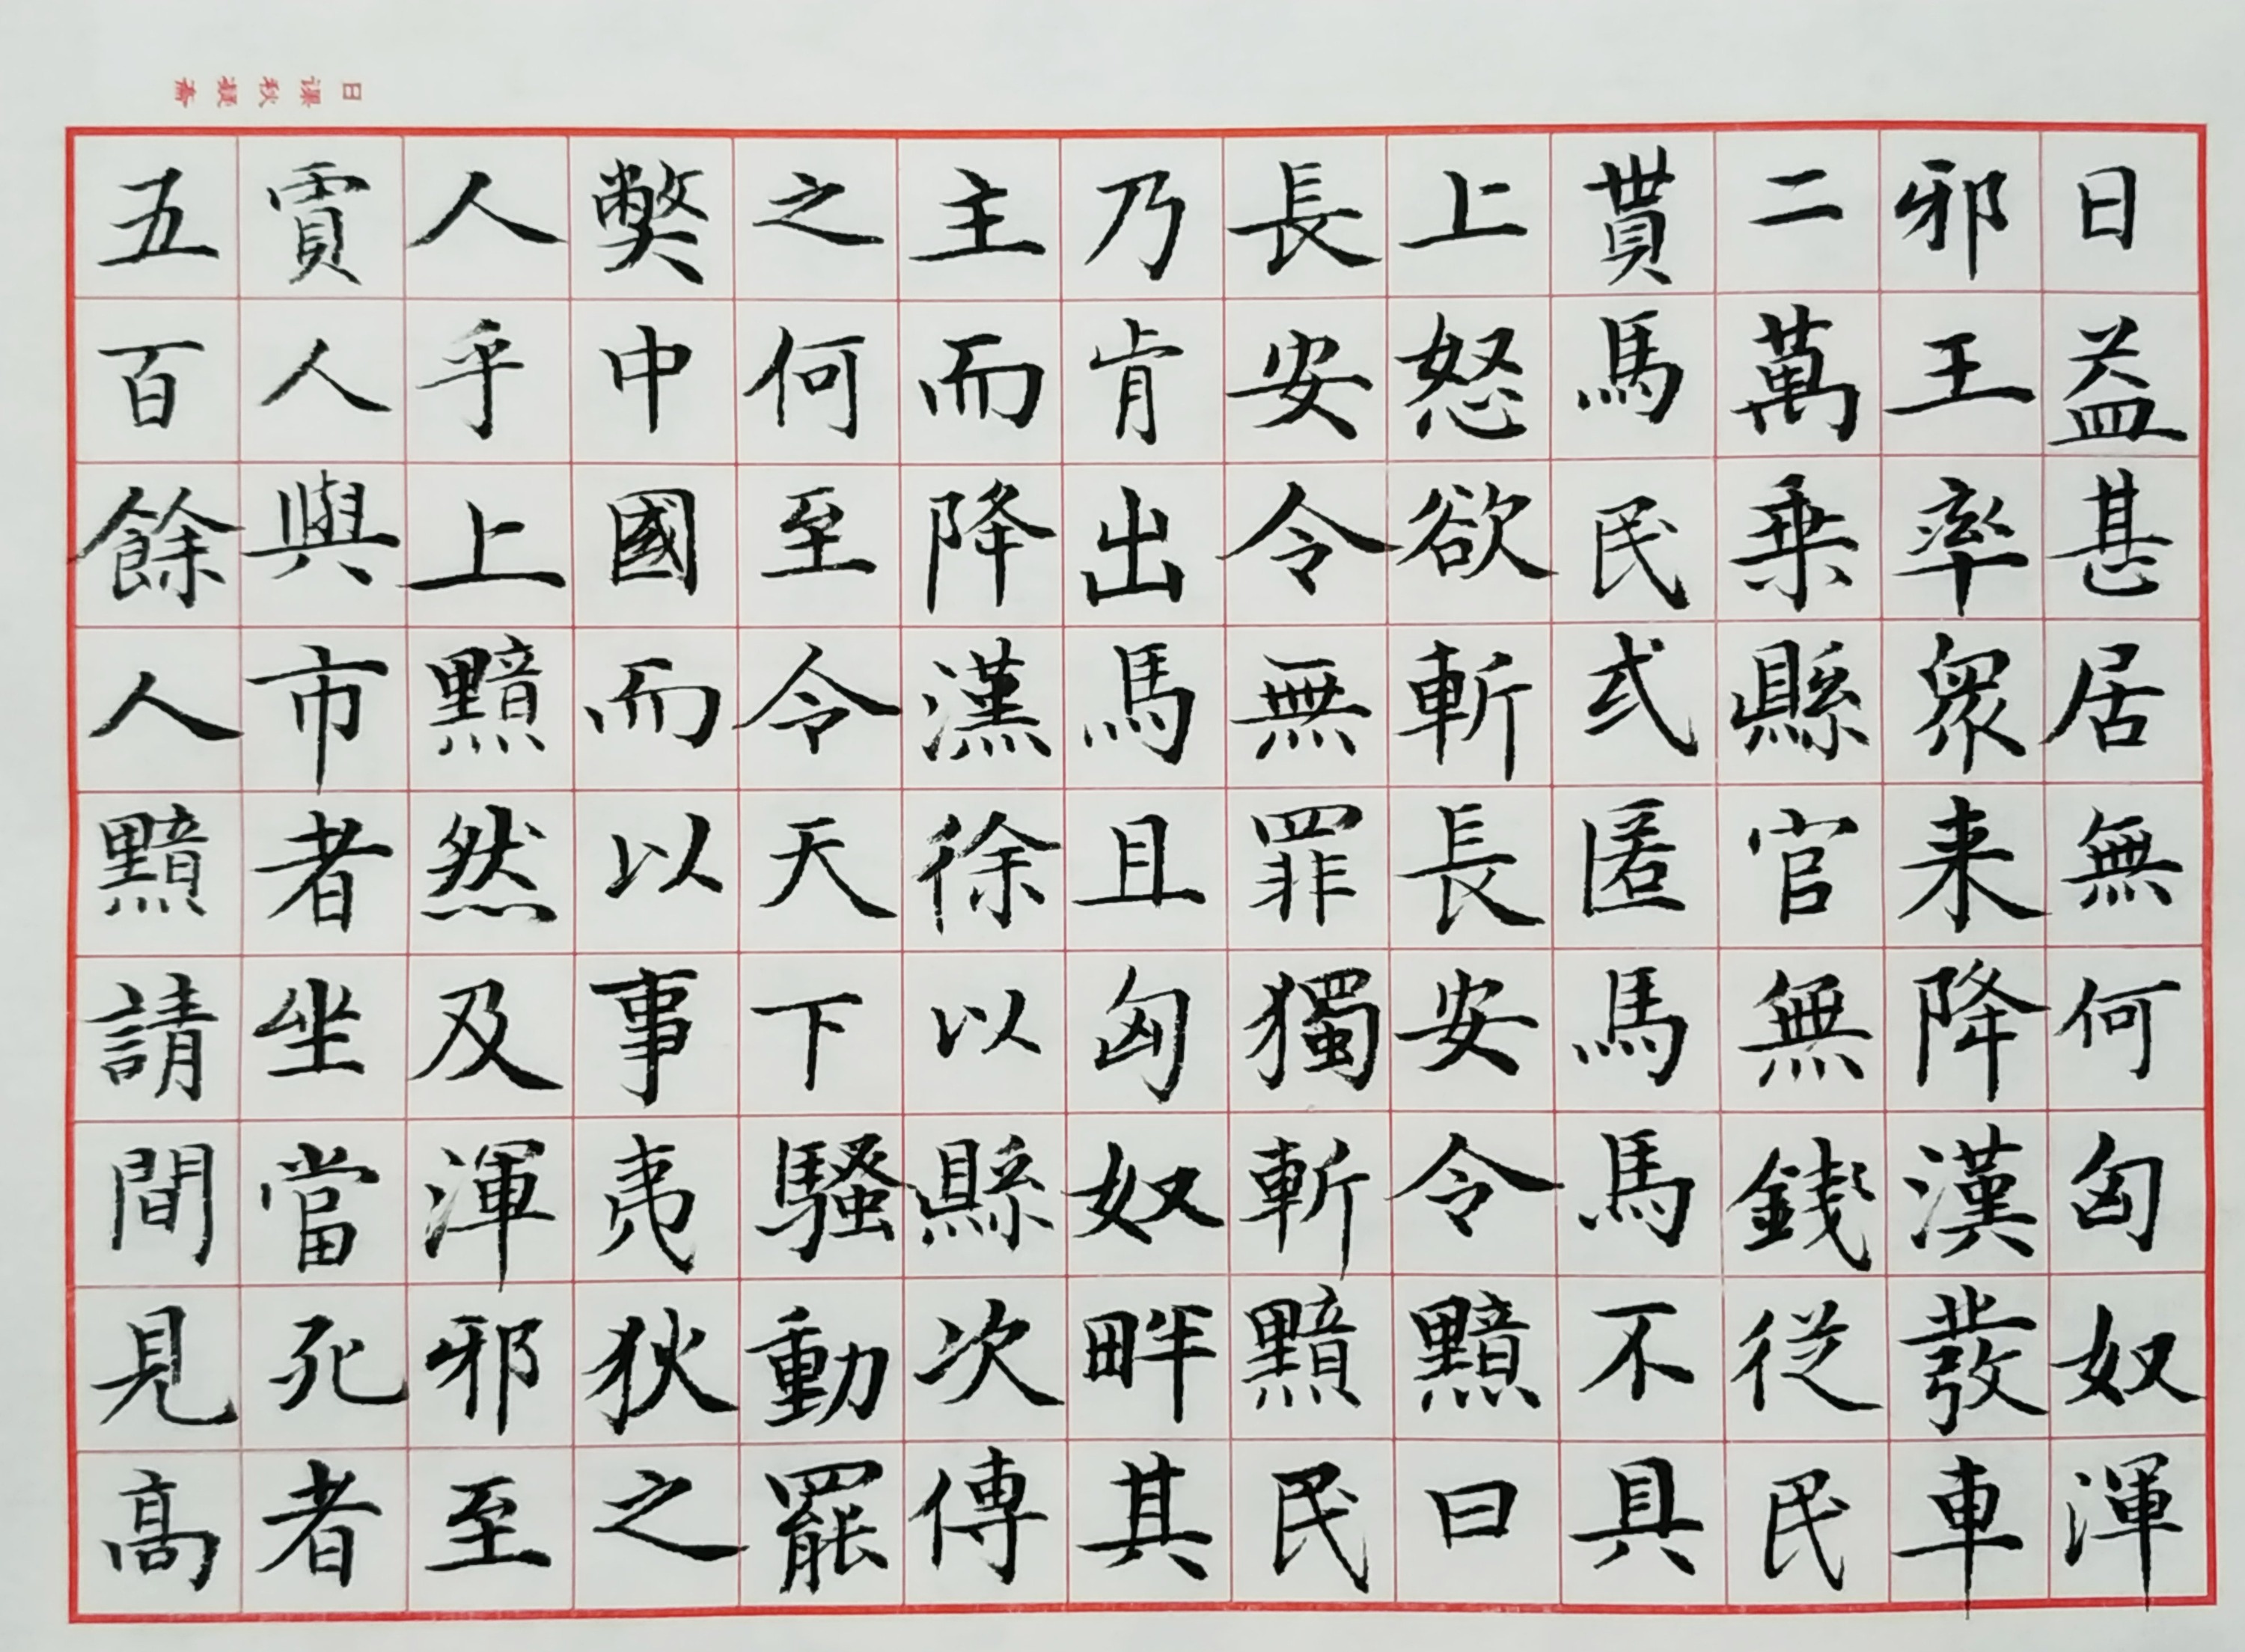 日課秋凝齋
日益甚居無何匈奴渾
邪王率衆来降漢發車
二萬乗縣官無錢從民
貰馬民或匿馬馬不具
上怒欲斬長安令黯曰
長安令無罪獨斬黯民
乃肯出馬且匈奴畔其
主而降漢徐以縣次傳
之何至令天下騷動罷
獘中國而以事夷狄之
人乎上黯然及渾邪至
賈人與市者坐當死者
五百餘人黯請間見高